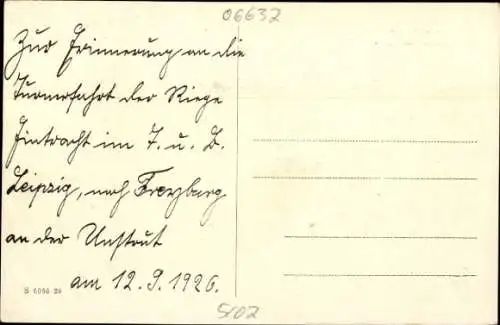 06632
Zur Erinnerung an die
Turnerfahrt der Riege
Eintracht im T. u. B.
Leipzig, nach Freyburg
an der Unstrut
am 12. 9. 1926.
S 6056 26
5/02